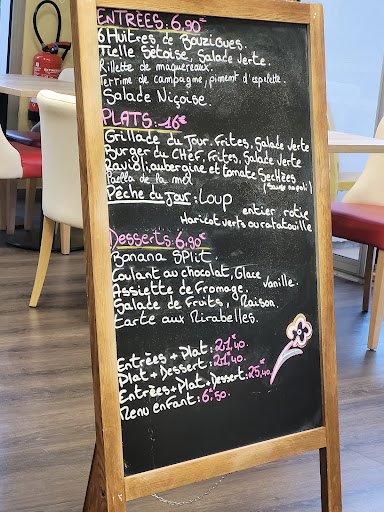 ENTRÈES: 6,90€
6 Huitres de Bouzigues.
Tielle Sètoise, Salade verte.
Rillette de maquereaux
Terrine de campagne, piment d'espelette.
Salade Niçoise.
PLATS: 16€
Grillade du Jour. Frites, Salade verte
Burger du Chef. Frites, Salade verte
Ravioli aubergine et tomate Sechées
Paella de la mer
(Sauce napoli)
Pêche du jour: Loup
entier rotie
Haricot verts ou ratatouille
Desserts: 6,90€
Banana Split.
Coulant au chocolat, Glace
Vanille.
Assiette de Fromage.
Salade de Fruits, Maison.
Tarte aux Mirabelles.
Entrèes + Plat: 21€40.
Plat + Dessert: 21€40.
Entrèes + Plat + Dessert: 25€40.
Menu enfant: 6€50.